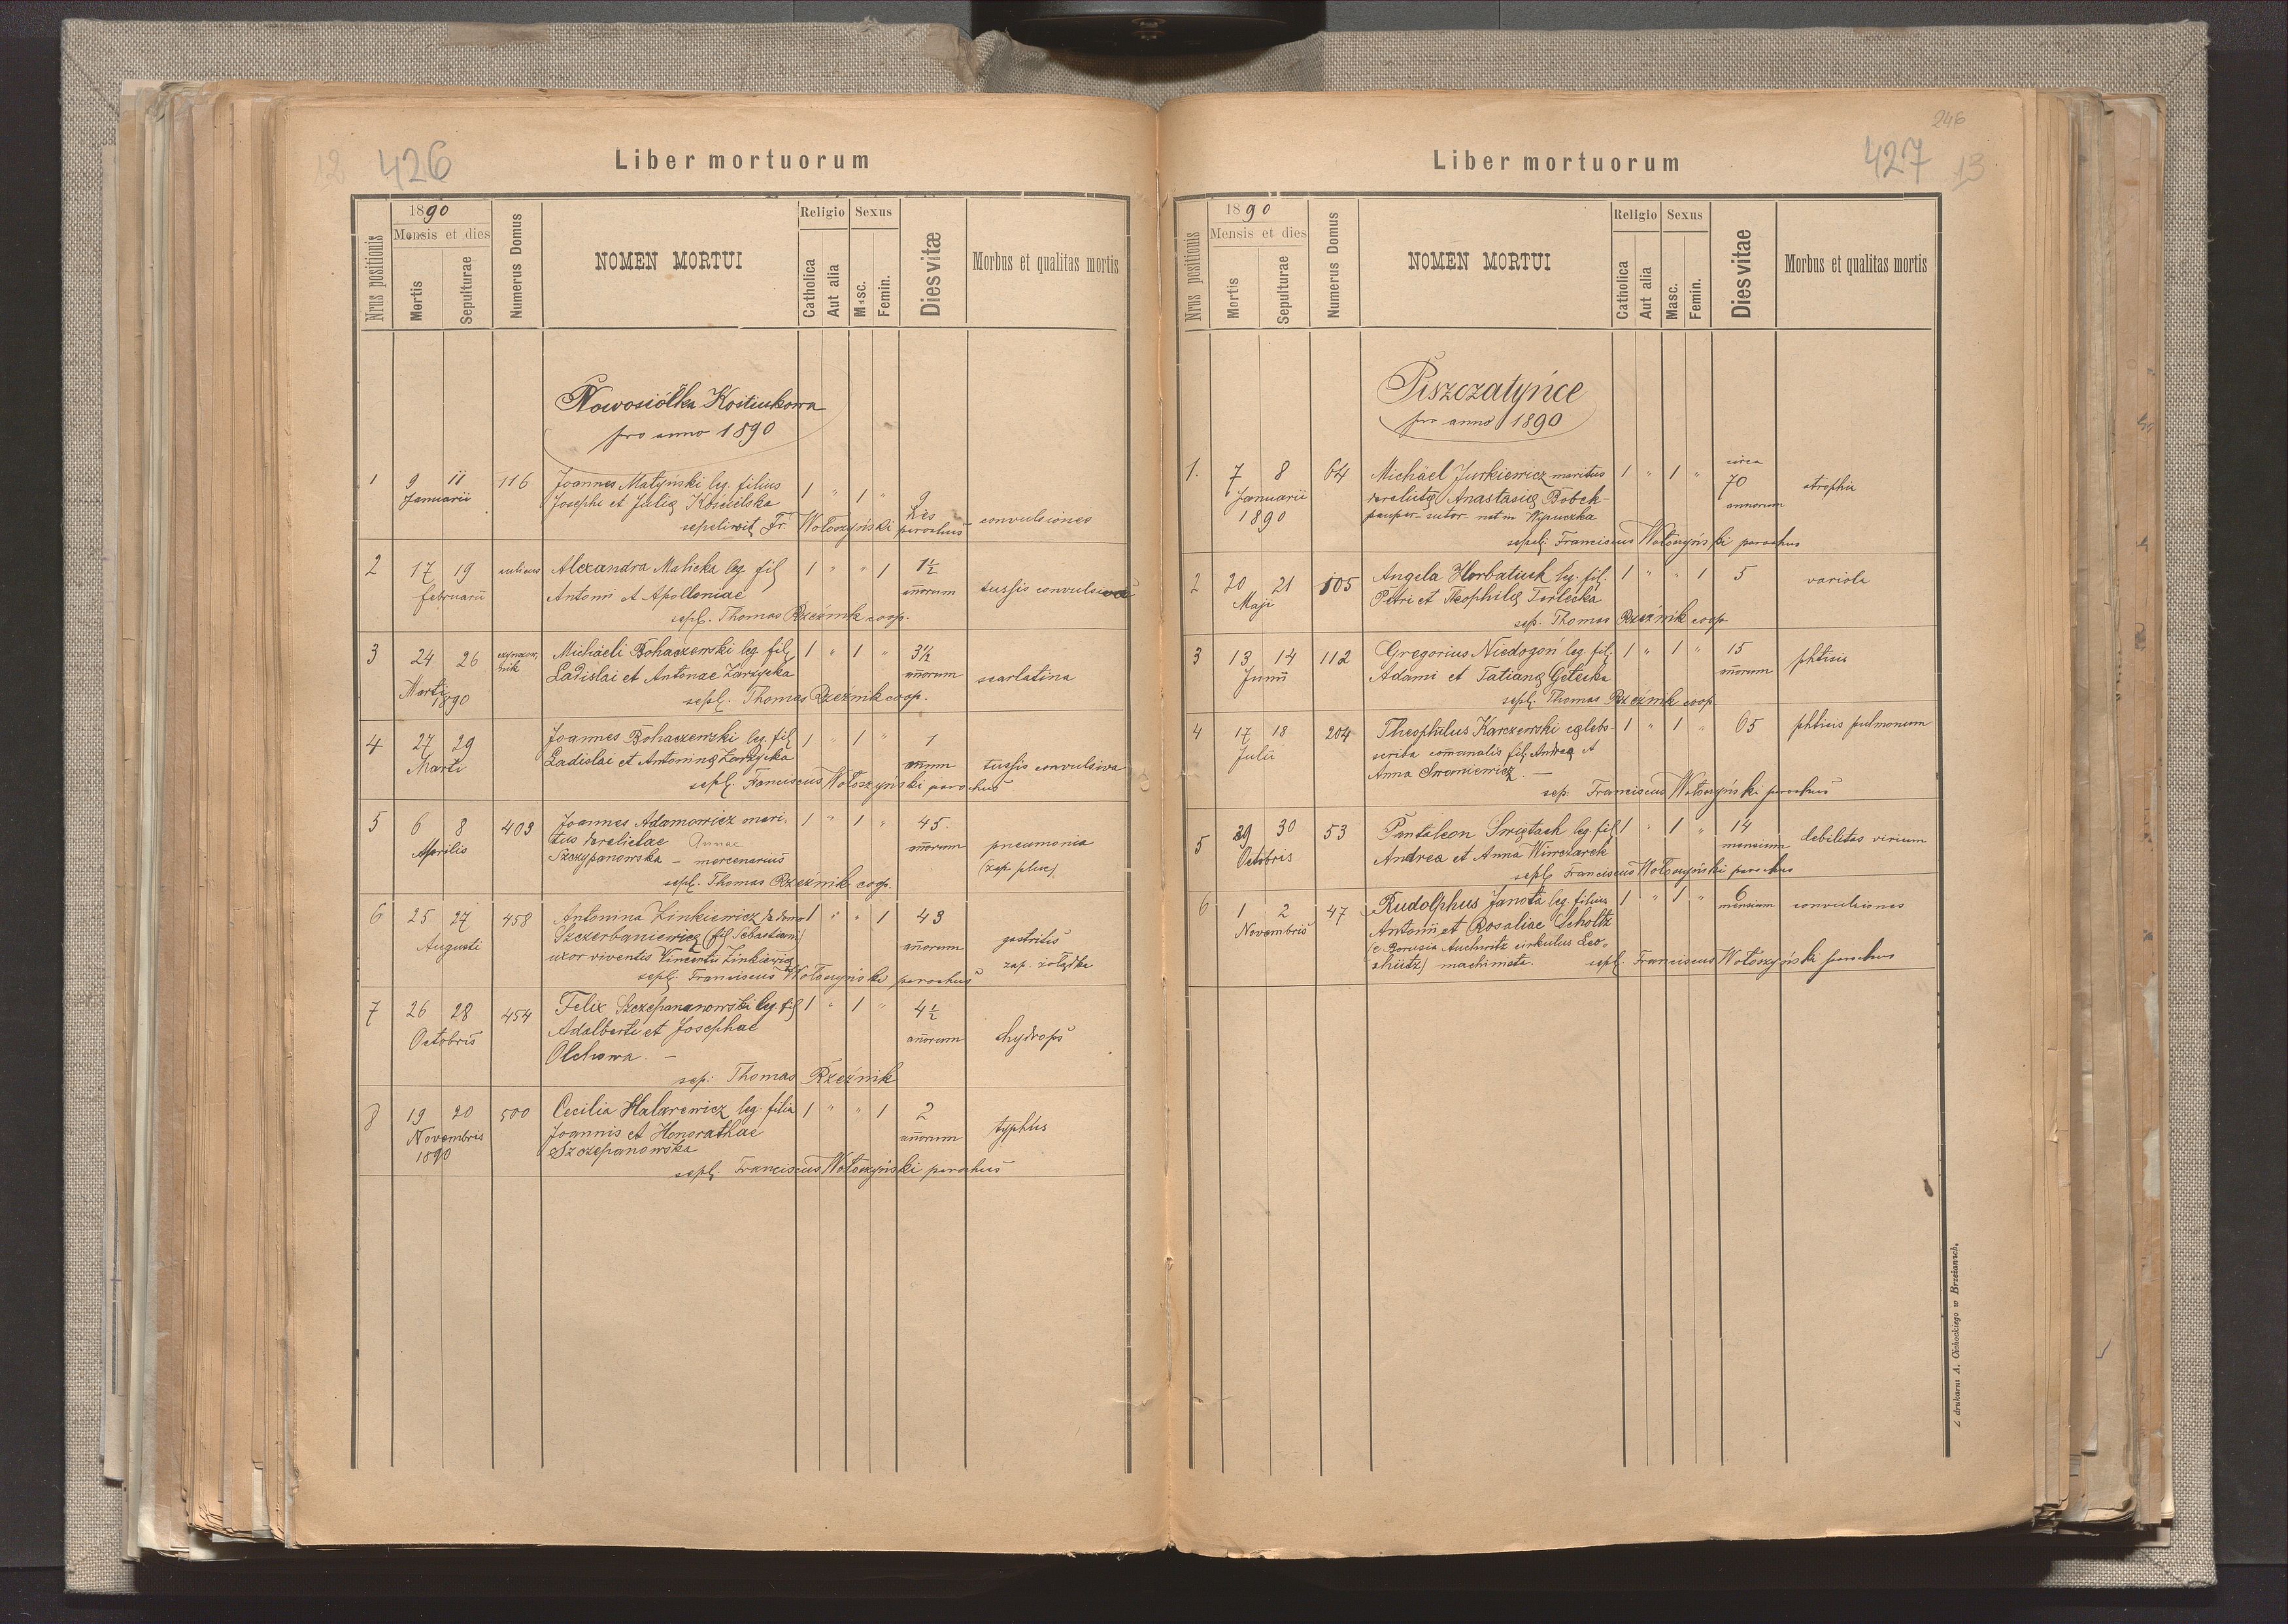 12 426
Liber mortuorum
Nrus positionis
1890
Mensis et dies
Mortis
Sepulturae
Numerus Domus
NOMEN MORTUI
Religio
Catholica
Aut alia
Sexus
Masc.
Femin.
Dies vitæ
Morbus et qualitas mortis
Nowosiółka Kostiukowa
pro anno 1890
1 9 11 116 Joannes Matyński leg. filius 1 " 1 " 9
Januarii Josephi et Julię Kościelska dies convulsiones
sepelivit Fr. Wołoszyński parochus
2 17 19 Alexandra Malicka leg. fil 1 " " 1 1½
februarii Antonii et Apolloniae añorum tussis convulsiva
sepl. Thomas Rzeźnik coop.
3 24 26 Michäeli Bohaczewski leg. fil 1 " 1 " 3½
Marti Ladislai et Antonae Zarzycka añorum scarlatina
1890 sepl. Thomas Rzeźnik coop.
4 27 29 Joannes Bohaczewski leg. fil 1 " 1 " 1
Marti Ladislai et Antoninę Zarzycka annum tussis convulsiva
sepl. Franciscus Wołoszyński parochus
5 6 8 403 Joannes Adamowicz mari- 1 " 1 " 45.
Aprilis tus derelictae Annae añorum pneumonia
Szczypanowska - mercenarius (zap. płuc)
sepl. Thomas Rzeźnik coop.
6 25 27 458 Antonina Zinkiewicz de domo 1 " " 1 43
Augusti Szczerbaniewicz (fil Sebastiani) añorum gastritis
uxor viventis Vincentii Zinkiewicz zap. żołądka
sepl. Franciscus Wołoszyński parochus
7 26 28 454 Felix Szczepananowski leg. fil 1 " 1 " 4½
Octobris Adalberti et Josephae añorum hydrops
Olchowa. -
sep: Thomas Rzeźnik
8 19 20 500 Cecilia Halarewicz leg. filia 1 " " 1 2
Novembris Joannis et Honorathae añorum typhus
1890 Szczepanowska
sepl. Franciscus Wołoszyński parochus
246
427 13
Liber mortuorum
Nrus positionis
1890
Mensis et dies
Mortis
Sepulturae
Numerus Domus
NOMEN MORTUI
Religio
Catholica
Aut alia
Sexus
Masc.
Femin.
Dies vitae
Morbus et qualitas mortis
Piszczatyńce
pro anno 1890
1. 7 8 64 Michäel Jurkiewicz maritus 1 " 1 " circa 70 annorum
Januarii derelictę Anastasię Bobek - atrophia
1890 pauper - sutor - nat in Wysuczka
sepel: Franciscus Wołoszyński parochus
2 20 21 105 Angela Horbatiuk leg. fil. 1 " " 1 5 variola
Maji Petri et Theophilę Torlecka
sep. Thomas Rzeźnik coop
3 13 14 112 Gregorius Niedogoń leg. fil. 1 " 1 " 15
Junii Adami et Tatianę Getecka añorum phtisis
sepl. Thomas Rzeźnik coop
4 17 18 204 Theophilus Karczewski cęlebs- 1 " 1 " 65 phtisis pulmonum
Julii scriba comunalis fil. Andreę et
Anna . -
sep: Franciscus Wołoszyński parochus
5 29 30 53 Pantaleon Swiętach leg. fil 1 " 1 " 14
Octobris Andrea et Anna Winczarek mensium debilitas virium
sepl. Franciscus Wołoszyński parochus
6 1 2 47 Rudolphus Janota leg. filius 1 " 1 " 6
Novembris Antonii et Rosaliae Scholtz mensium convulsiones
(e Borusia Auchwitz cirkulus Leo-
shütz) machinista. sepl. Franciscus Wołoszyński parochus
Z drukarni A. Cichockiego w Brzeżanach.